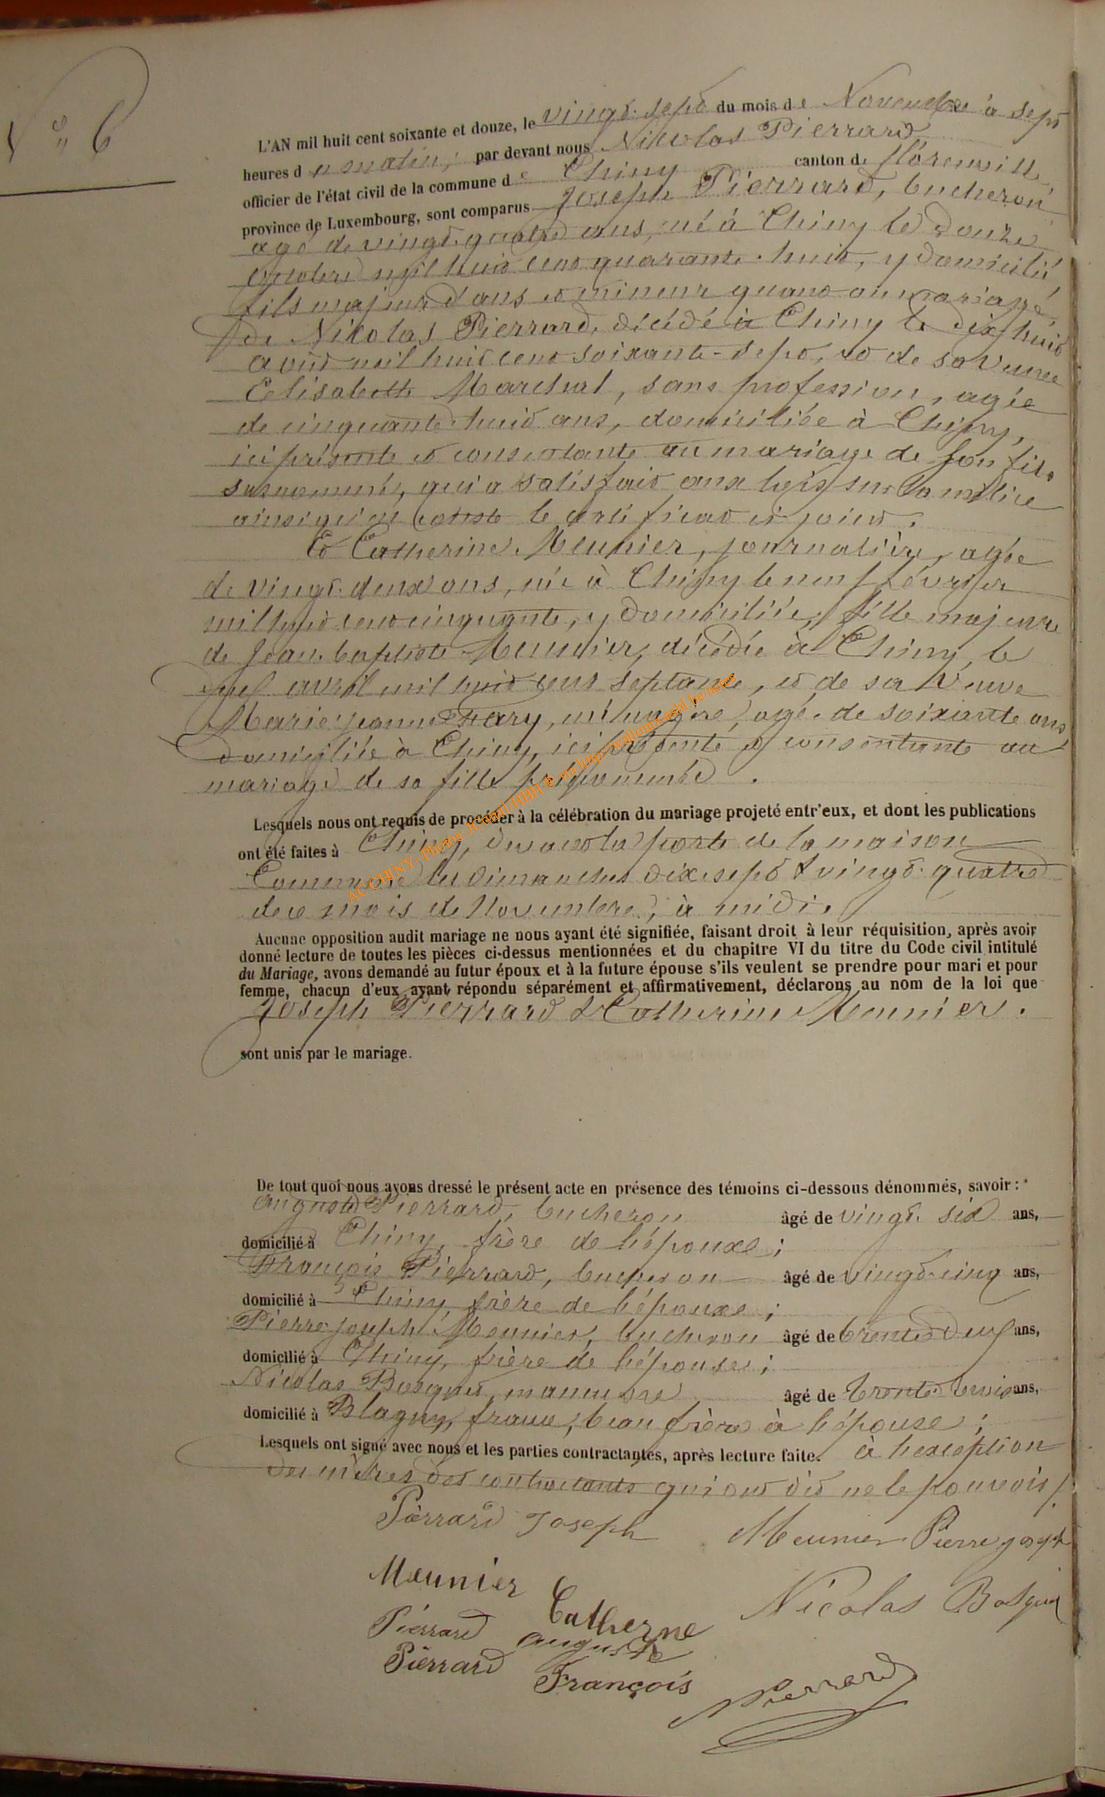 N° 6
L'AN mil huit cent soixante et douze, le vingt-sept du mois de Novembre à sept
heures du matin, par devant nous Nikolas Pierrard
officier de l'état civil de la commune de Chiny canton de florenville
province de Luxembourg, sont comparus Joseph Pierrard, bucheron
agé de vingt-quatre ans, né à Chiny le douze
octobre mil huit cent quarante-huit, y domicilié
fils majeur d'ans et mineur quant au mariage,
de Nikolas Pierrard, décédé à Chiny le dix huit
avril mil huit cent soixante-sept, et de sa veuve
Elisabeth Marchal, sans profession, agée
de cinquante-huit ans, domiciliée à Chiny,
ici présente et consentante au mariage de son fils
susnommé, qui a satisfait aux lois sur la milice
ainsi qu'en conste le certificat ci-joint.
Et Catherine Meunier, journalière, agée
de vingt-deux ans, née à Chiny le neuf février
mil huit cent cinquante, y domiciliée, fille majeure
de Jean-baptiste Meunier, décédée à Chiny, le
avril mil huit cent septante, et de sa veuve
Marie-jeanne ménagère, agée de soixante ans
domiciliée à Chiny, ici présente et consentante au
mariage de sa fille
AC CHINY, Photos
Lesquels nous ont requis de procéder à la célébration du mariage projeté entr'eux, et dont les publications
ont été faites à Chiny, devant la porte de la maison
Commune les dimanches dix-sept & vingt-quatre
de ce mois de Novembre, à midi.
Aucune opposition audit mariage ne nous ayant été signifiée, faisant droit à leur réquisition, après avoir
donné lecture de toutes les pièces ci-dessus mentionnées et du chapitre VI du titre du Code civil intitulé
du Mariage, avons demandé au futur époux et à la future épouse s'ils veulent se prendre pour mari et pour
femme, chacun d'eux ayant répondu séparément et affirmativement, déclarons au nom de la loi que
Joseph Pierrard & Catherine Meunier.
sont unis par le mariage.
De tout quoi nous avons dressé le présent acte en présence des témoins ci-dessous dénommés, savoir :
Auguste Pierrard, bucheron âgé de vingt-six ans,
domicilié à Chiny, frère de l'époux ;
François Pierrard, bucheron âgé de vingt-cinq ans,
domicilié à Chiny, frère de l'époux ;
Pierre-joseph Meunier, bucheron âgé de trente-deux ans,
domicilié à Chiny, frère de l'épouse ;
Nicolas manuvre âgé de trente-trois ans,
domicilié à Blagny, france, beau frère à l'épouse ;
Lesquels ont signé avec nous et les parties contractantes, après lecture faite. à l'exception
des mères des contractants qui ont dit ne le pouvoir.
Pierrard Joseph Meunier Pierre joseph
Meunier Catherne Nicolas
Pierrard auguste
Pierrard François Pierrard